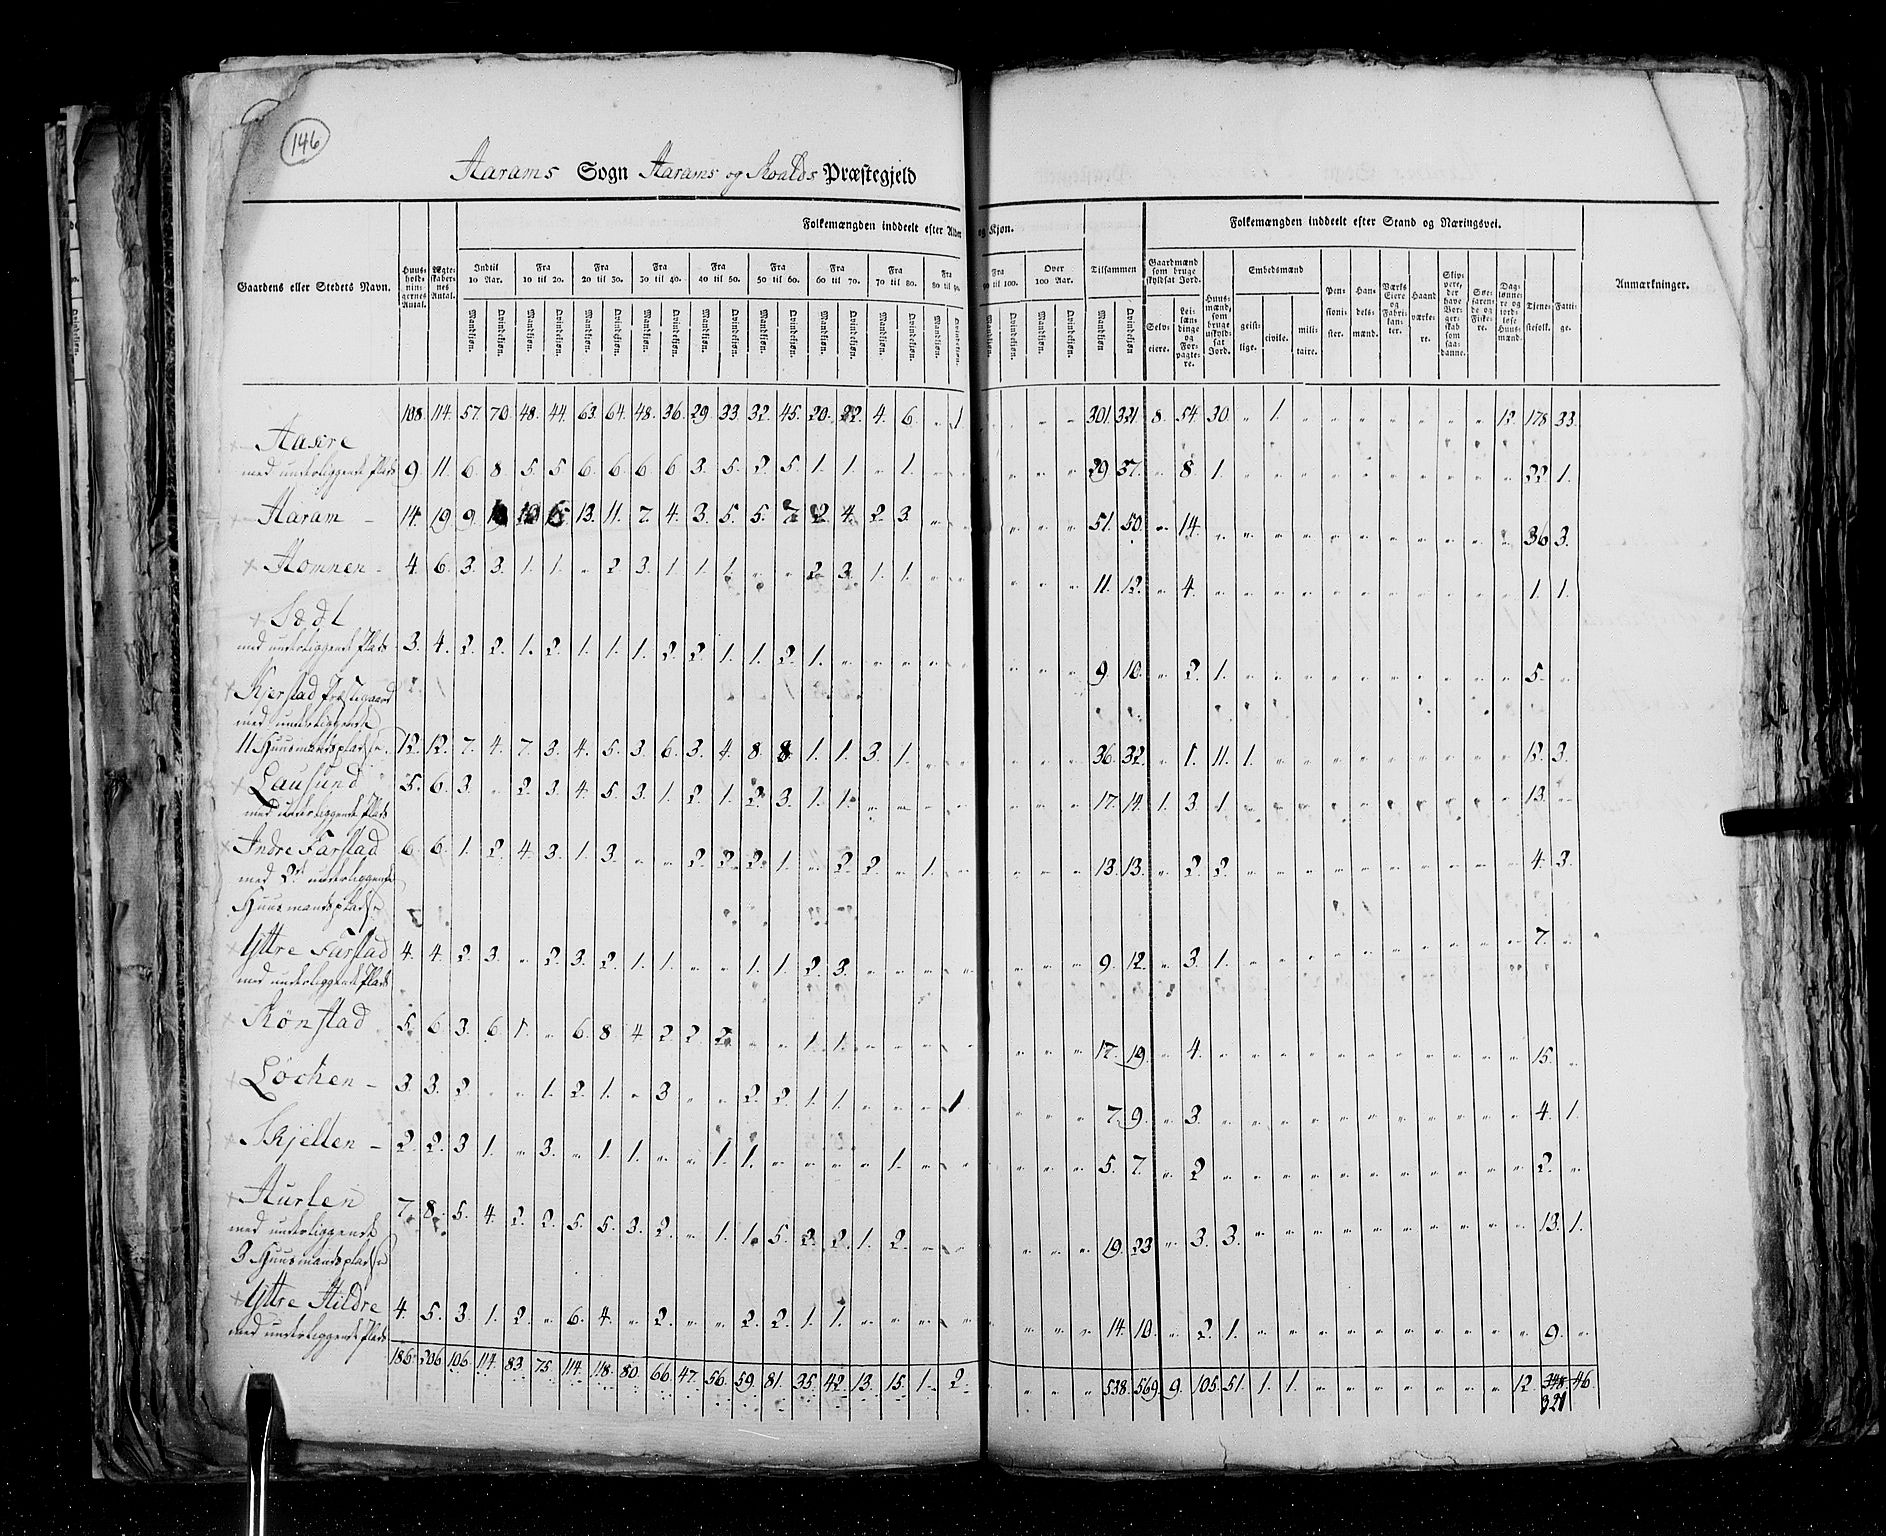 146
Aarams Sogn Aarams og Roalds Præstegjeld
Folkemængden inddeelt efter Alder og Kjøn.
Folkemængden inddeelt efter Stand og Næringsvei.
Gaardens eller Stedets Navn.
Huus-holdnin-gernes Antal.
Ægte-skaber-nes Antal.
Indtil 10 Aar.
Fra 10 til 20.
Fra 20 til 30.
Fra 30 til 40.
Fra 40 til 50.
Fra 50 til 60.
Fra 60 til 70.
Fra 70 til 80.
Fra 80 til 90.
Fra 90 til 100.
Over 100 Aar.
Tilsammen
Mandkjøn. Qvindekjøn.
Gaardmænd som bruge skyldsat Jord.
Selv-eiere.
Lei-lændinge og For-pagte-re.
Huus-mænd, som bruge uskyld-sat Jord.
Embedsmænd
geist-lige.
civile.
mili-taire.
Pen-sioni-ster.
Han-dels-mænd.
Værks Eiere og Fabri-kan-ter.
Haand værke-re.
Skip-pere, der have Bor-ger-skab som saa-danne.
Søe-faren-de og Fiske-re.
Dag-lønne-re og jord-løse Huus-mænd.
Tjene-stefolk.
Fatti-ge.
Anmærkninger.
108. 114. 57. 70. 48. 44. 63. 64. 48. 36. 29. 33. 32. 45. 20. 22. 4. 6. „ 1. „ „ „ „ 301. 321. 8. 54. 30. „ 1. „ „ „ „ „ „ „ 12. 178. 33.
Aasere
med underliggende Plads 9. 11. 6. 8. 5. 5. 6. 6. 6. 6. 3. 5. 2. 5. 1. 1. „ 1. „ „ „ „ „ „ 29. 37. „ 8. 1. „ „ „ „ „ „ „ „ „ „ 22. 1.
Aaram – 14. 19. 9. 10. 6. 13. 11. 7. 4. 3. 5. 5. 7. 2. 4. 2. 3. „ „ „ „ „ „ 51. 50. „ 14. „ „ „ „ „ „ „ „ „ „ „ 36. 3.
Homnen – 4. 6. 3. 3. 1. 1. „ 2. 3. 1. 1. 1. „ „ 2. 3. 1. 1. „ „ „ „ „ „ 11. 12. „ 4. „ „ „ „ „ „ „ „ „ „ „ 1. 1.
med underliggende Plads 3. 4. 2. 2. 1. 2. 1. 1. 1. 2. 2. 1. 1. 2. 1. „ „ „ „ „ „ „ „ „ 9. 10. „ 2. 1. „ „ „ „ „ „ „ „ „ „ 5. „
Kjerstad Præstegaard
med underliggende
11 Huusmandspladse 12. 12. 7. 4. 7. 3. 4. 5. 3. 6. 3. 4. 8. 8. 1. 1. 3. 1. „ „ „ „ „ „ 36. 32. „ 1. 11. 1. „ „ „ „ „ „ „ „ „ 12. 3.
Lausund 5. 6. 3. „ 2. 3. 4. 5. 3. 1. 2. 1. 2. 3. 1. 1. „ „ „ „ „ „ „ „ 17. 14. 1. 3. 1. „ „ „ „ „ „ „ „ „ „ 13. „
med underliggende Plads
Indre Farstad 6. 6. 1. 2. 4. 3. 1. 3. „ „ 2. 2. 2. 1. „ 2. 2. „ 1. „ „ „ „ „ 13. 13. „ 2. 2. „ „ „ „ „ „ „ „ „ „ 4. 3.
med 2de underliggende
Huusmandspladse
Yttre Farstad 4. 4. 2. 3. „ 2. 3. 2. 1. 1. „ „ 1. 1. 2. 3. „ „ „ „ „ „ „ „ 9. 12. „ 3. 1. „ „ „ „ „ „ „ „ „ „ 7. „
med underliggende Plads
Rønstad 5. 6. 3. 6. 1. „ 6. 8. 4. 2. 2. 2. „ „ 1. 1. „ „ „ „ „ „ „ „ 17. 19. „ 4. „ „ „ „ „ „ „ „ „ „ „ 15. „
Løchen – 3. 3. 2. „ „ 1. 2. 1. „ 3 „ „ 2. 2. 1. 1. „ „ „ 1. „ „ „ „ 7. 9. „ 3. „ „ „ „ „ „ „ „ „ „ „ 4. 1.
Skjelten – 2. 2. 3 1. „ 3. „ 1. 1. „ „ 1. 1. „ „ „ „ 1. „ „ „ „ „ „ 5. 7. „ 2 „ „ „ „ „ „ „ „ „ „ „ 2. „
Aurlen 7. 8. 5. 4. 2. 2. 5. 5. 3. 2. „ 1. 1. 5. 2. 2. 1. 2. „ „ „ „ „ „ 19. 23 „ 3. 3. „ „ „ „ „ „ „ „ „ „ 13. 1.
med underliggende
3 Huusmandspladse
Yttre Hildre 4. 5. 3. 1. 2. „ 6. 4. „ 2. „ „ 2. 2. 1. 1. „ „ „ „ „ „ „ „ 14. 10. „ 2. 1. „ „ „ „ „ „ „ „ „ „ 9. „
med underliggende Plads
186. 206 106. 114. 83. 75. 114. 118. 80. 66. 47. 56. 59. 81. 35. 42. 13. 15. 1. 2. „ „ „ „ 538. 569. 9. 105. 51. 1. 1. „ „ „ „ „ „ „ 12. 46.
321